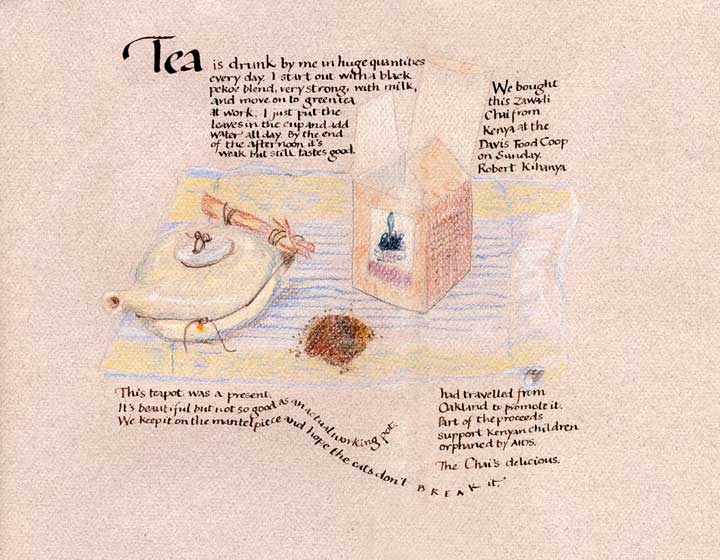 Tea is drunk by me in huge quantities
every day. I start out with a black
pekoe blend, very strong, with milk,
and move on to green tea
at work. I just put the
leaves in the cup and add
water all day. By the end
of the afternoon it's
weak but still tastes good.
We bought
this Zawadi
Chai from
Kenya at the
Davis Food Coop
on Sunday.
Robert Kihanya
had travelled from
Oakland to promote it.
Part of the proceeds
support Kenyan children
orphaned by AIDS.
The Chai's delicious.
This teapot was a present.
It's beautiful but not so good as an actual working pot.
We keep it on the mantelpiece and hope the cats don't BREAK it.